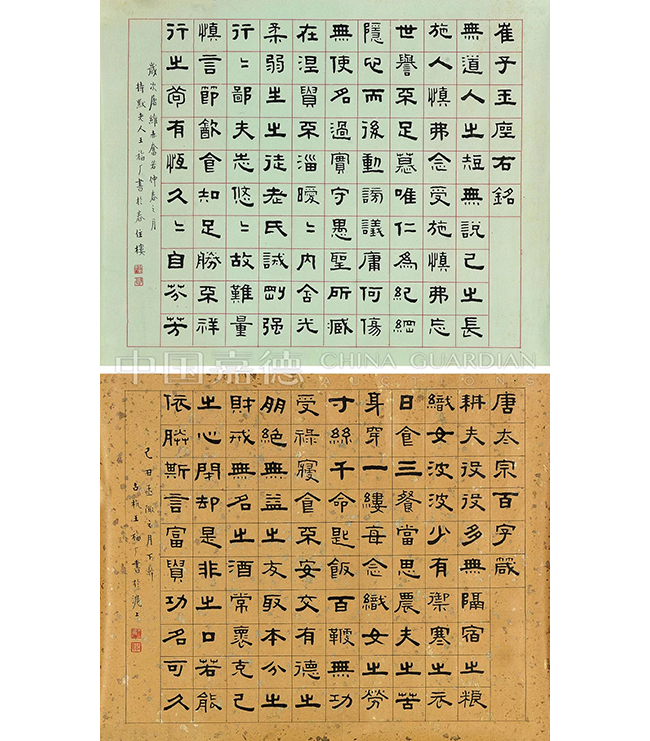 崔子玉座右銘
無道人之短無說己之長
施人慎弗念受施慎弗忘
世譽不足慕唯仁為紀綱
隱心而後動謗議庸何傷
無使名過實守愚聖所臧
在涅貴不淄曖〻內含光
柔弱生之徒老氏誡剛强
行〻鄙夫志悠〻故難量
慎言節飲食知足勝不祥
行之苟有恆久〻自芬芳
歲次屠維赤奮若仲春之月
持默老人王福厂書於春住樓
中国嘉德 CHINA GUARDIAN
唐太宗百字箴
耕夫役役多無隔宿之粮
織女波波少有禦寒之衣
日食三餐當思農夫之苦
身穿一縷每念織女之勞
寸絲千命匙飯百鞭無功
受祿寢食不安交有德之
朋絕無益之友取本分之
財戒無名之酒常褱克己
之心閉却是非之口若能
依朕斯言富貴功名可久
己丑孟陬之月下澣
古杭王福厂書於滬上